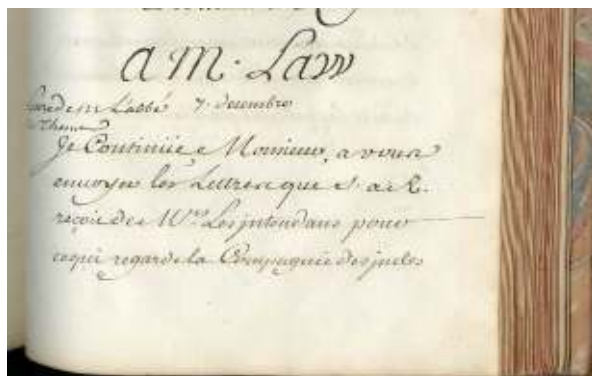 a M. Law
de M l'abbé 7. decembre
Je Continüe Monsieur, a vous
envoyer les Lettres que S. A. R.
reçoit de Mrs Les jntendans pour
cequi regarde la Compagnie des jndes